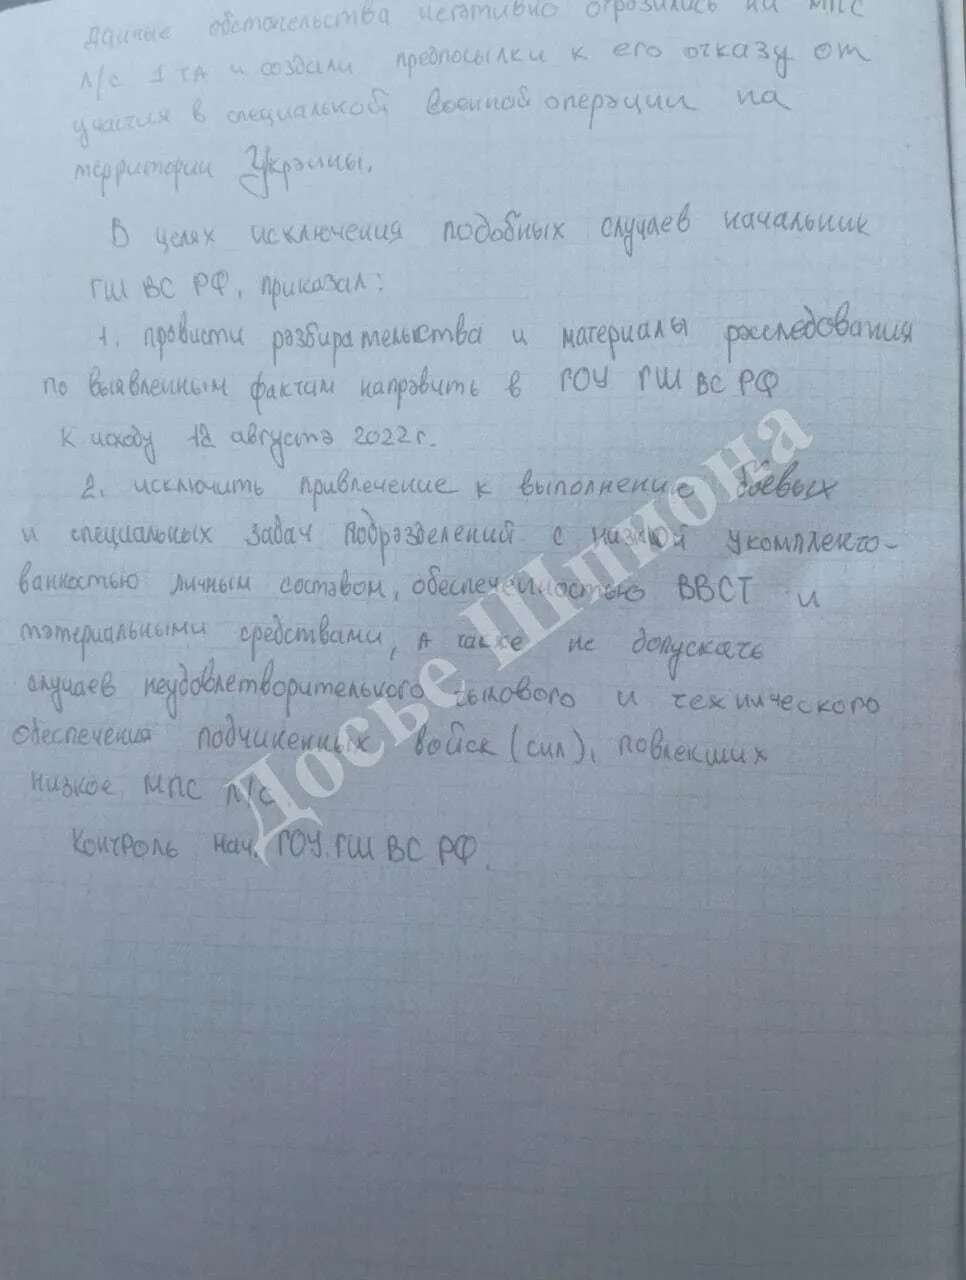 Данные обстоятельства негативно отразились на МПС
л/с 1 ТА и создали предпосылки к его отказу от
участия в специальной военной операции на
территории Украины.
В целях исключения подобных случаев начальник
ГШ ВС РФ, приказал:
1. провести разбирательства и материалы расследования
по выявленным фактам направить в ГОУ ГШ ВС РФ
к исходу 12 августа 2022 г.
2. исключить привлечение к выполнению боевых
и специальных задач подразделений с низкой укомплекто-
ванностью личным составом, обеспеченностью ВВСТ и
материальными средствами, а также не допускать
случаев неудовлетворительного тылового и технического
обеспечения подчиненных войск (сил), повлекших
низкое МПС л/с
Контроль нач. ГОУ ГШ ВС РФ.
Досье Шпиона